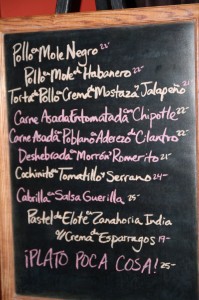 Pollo en Mole Negro 23-
Pollo en Mole de Habanero 23-
Torta de Pollo en Crema de Mostaza y Jalapeño 21-
Carne Asada Entomatada con Chipotle 22-
Carne Asada Poblano Aderezo de Cilantro 22-
Deshebrada Morrón y Romerito 21-
Cochinita en Tomatillo y Serrano 24-
Cabrilla en Salsa Guerilla 25-
Pastel de Elote y Zanahoria India
c/Crema de Esparragos 19-
¡PLATO POCA COSA! 25-